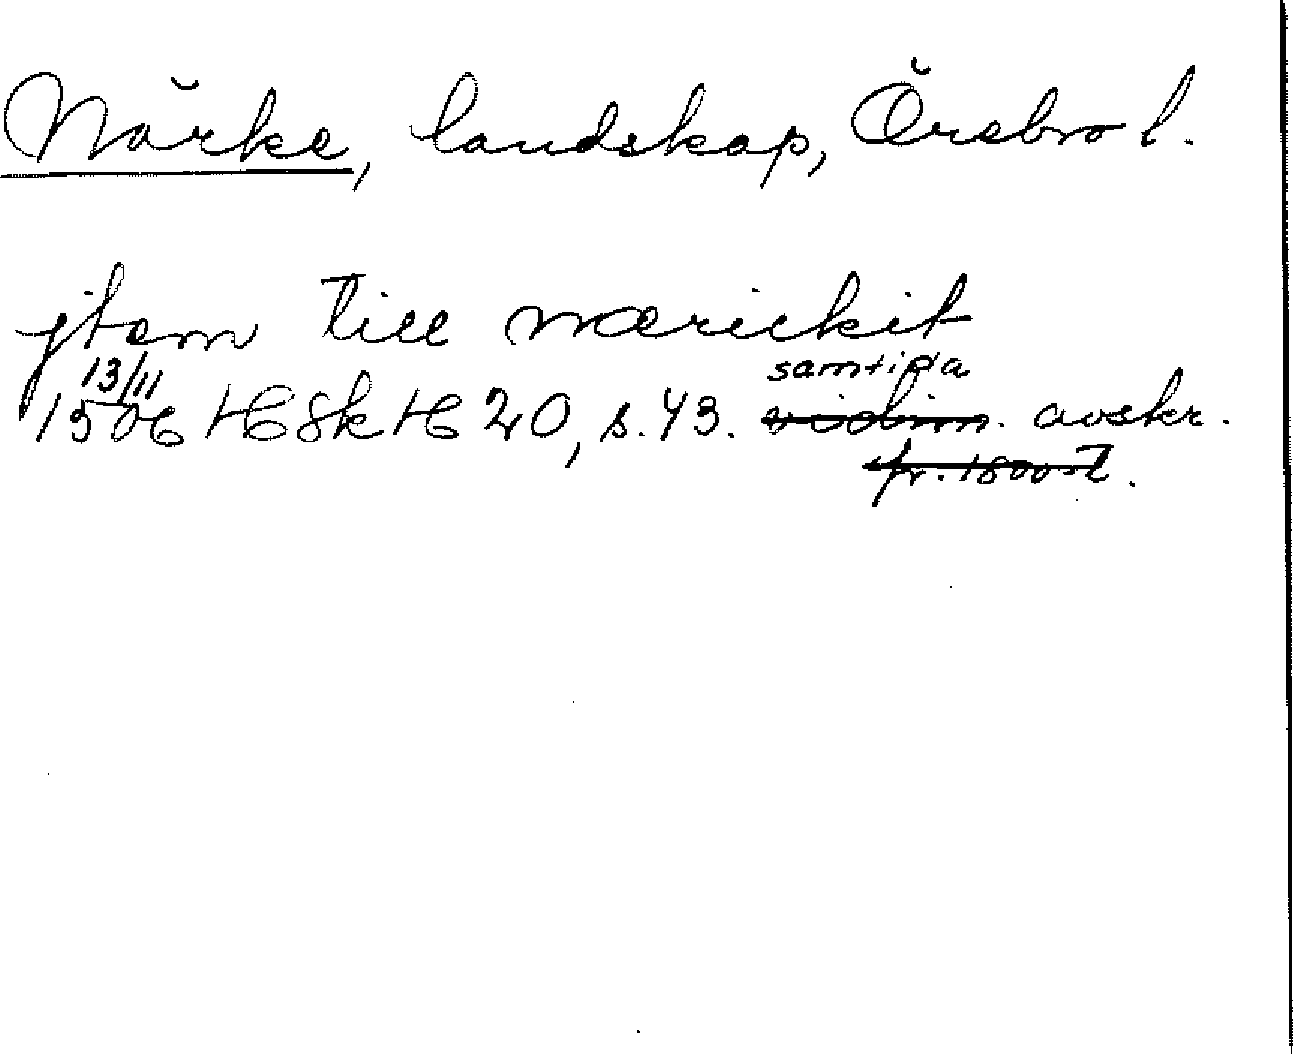 Närke, landskap, Örebro l.
jtem till nærickit
13/11
1506 HSkH 20, s. 43. samtida vidim. avskr.
fr. 1800-t.